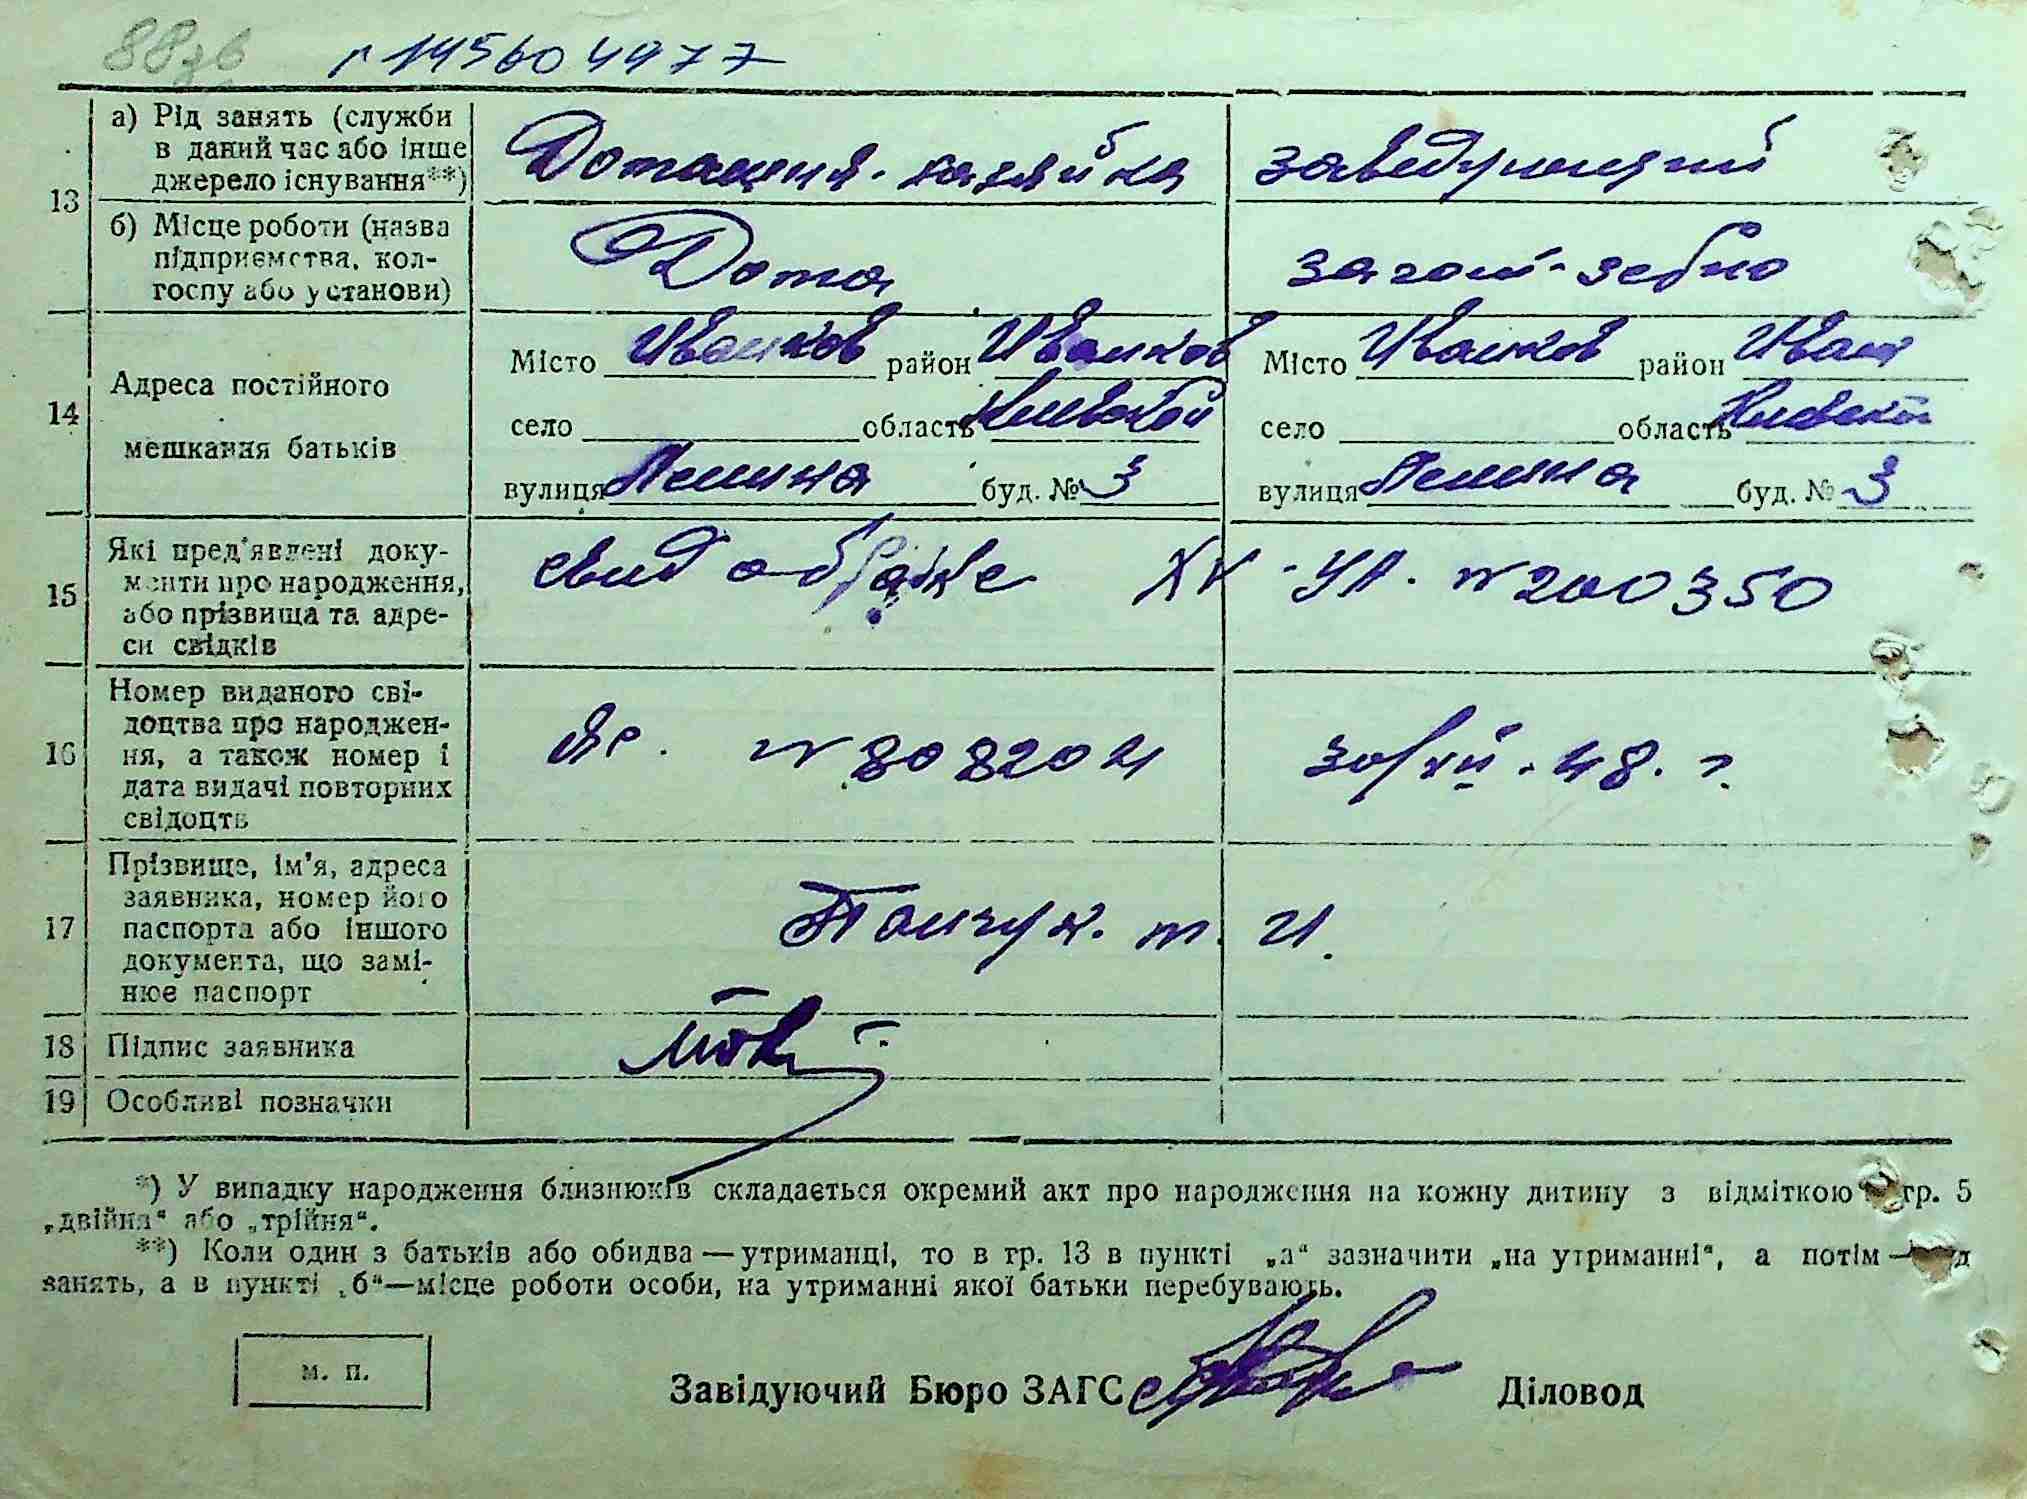 88зв
г 145604977
13
а) Рід занять (служби в даний час або інше джерело існування**)
Домашня-хазяйка
заведующий
б) Місце роботи (назва підприємства, колгоспу або установи)
Дома
14
Адреса постійного мешкання батьків
Місто Иванков район Иванков
село область Киевской
вулиця Ленина буд. № 3
Місто Иванков район Иван
село область Киевской
вулиця Ленина буд. № 3
15
Які пред'явлені документи про народження, або прізвища та адреси свідків
Свид о браке УЛ. № 200350
16
Номер виданого свідоцтва про народження, а також номер і дата видачі повторних свідоцтв
30/XII-48. г.
17
Прізвище, ім'я, адреса заявника, номер його паспорта або іншого документа, що замінює паспорт
18
Підпис заявника
19
Особливі позначки
*) У випадку народження близнюків складається окремий акт про народження на кожну дитину з відміткою гр. 5
„двійня“ або „трійня“.
**) Коли один з батьків або обидва — утриманці, то в гр. 13 в пункті „а“ зазначити „на утриманні“, а потім —
занять, а в пункті „б“—місце роботи особи, на утриманні якої батьки перебувають.
м. п.
Завідуючий Бюро ЗАГС
Діловод